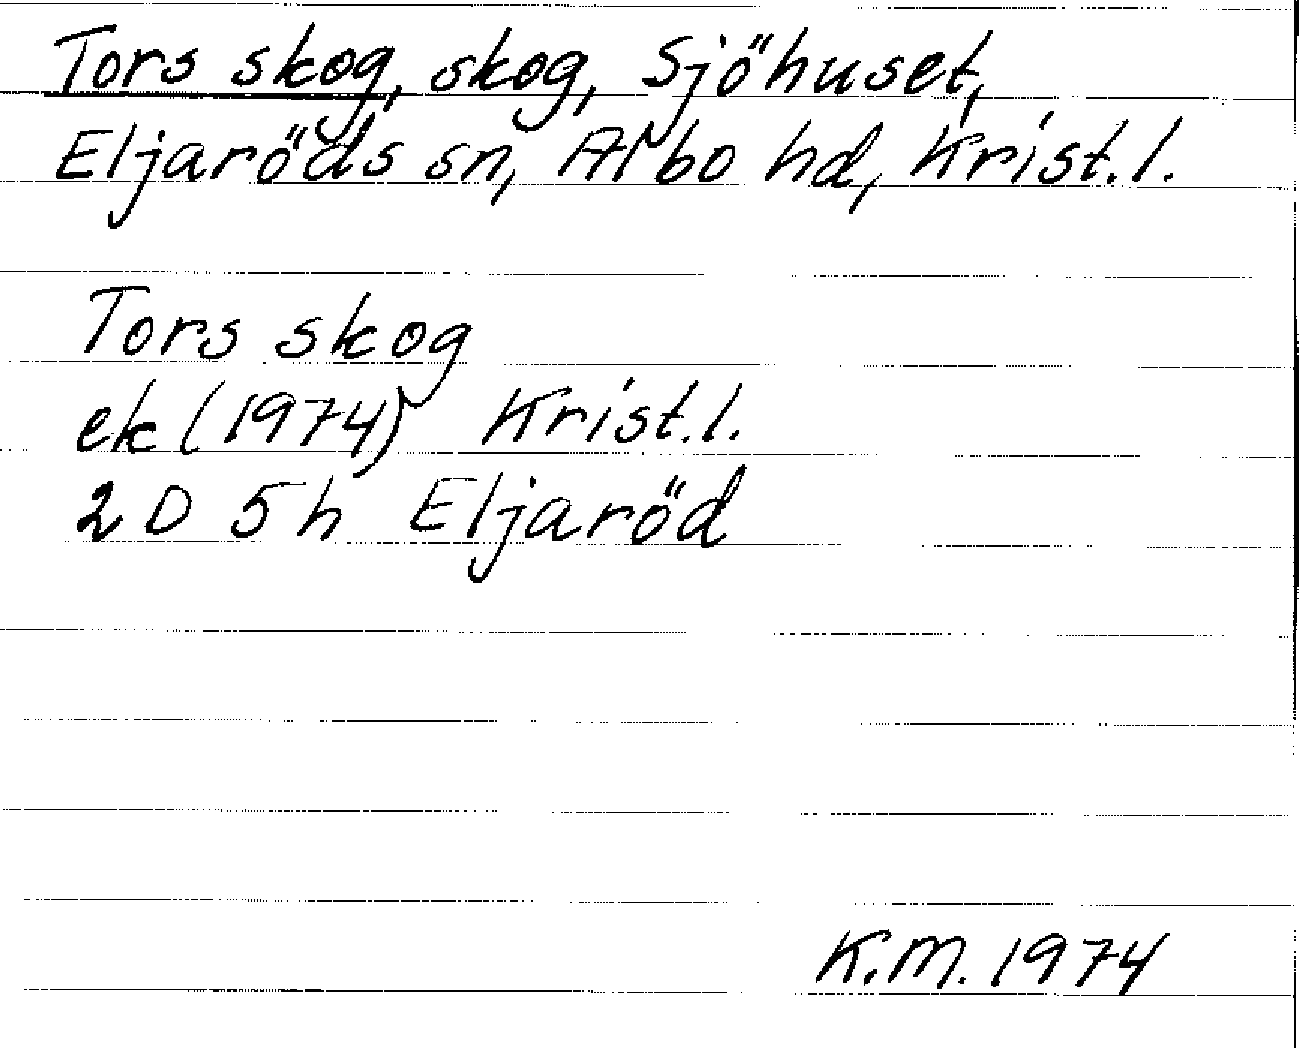 Tors skog, skog, Sjöhuset,
Eljaröds sn, Albo hd, Krist.l.
Tors skog
ek (1974) Krist.l.
2D 5h Eljaröd
K.M. 1974